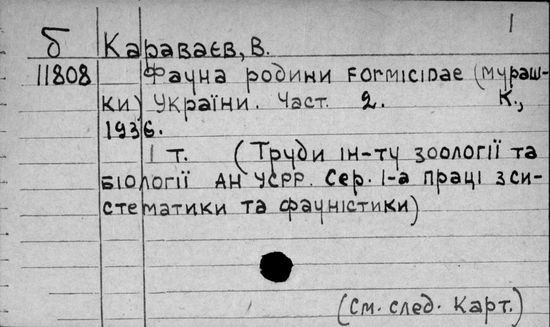 1
б Караваєв, В.
11808 Фауна родини Formicidae (мураш-
ки) України. Част. 2. К.,
1936.
1 т. (Труди ін-ту зоології та
біології АН УСРР. Сер. 1-а праці з си-
стематики та фауністики)
(См. след. карт.)